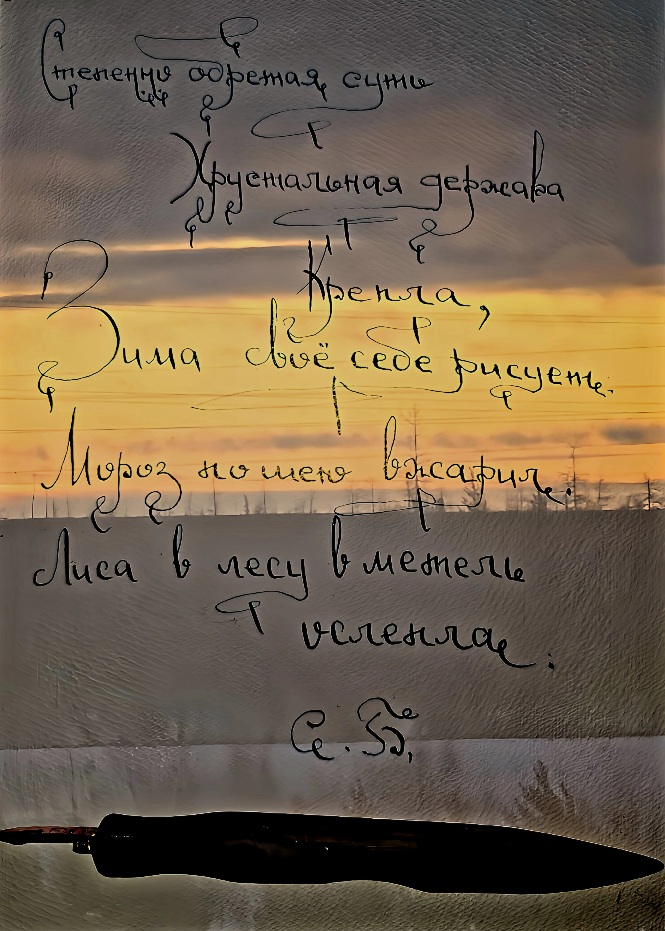 Степенно обретая суть
Хрустальная держава
Крепла,
Зима своё себе рисует.
Мороз по шею вжарил.
Лиса в лесу в метель
ослепла.
С.Б.